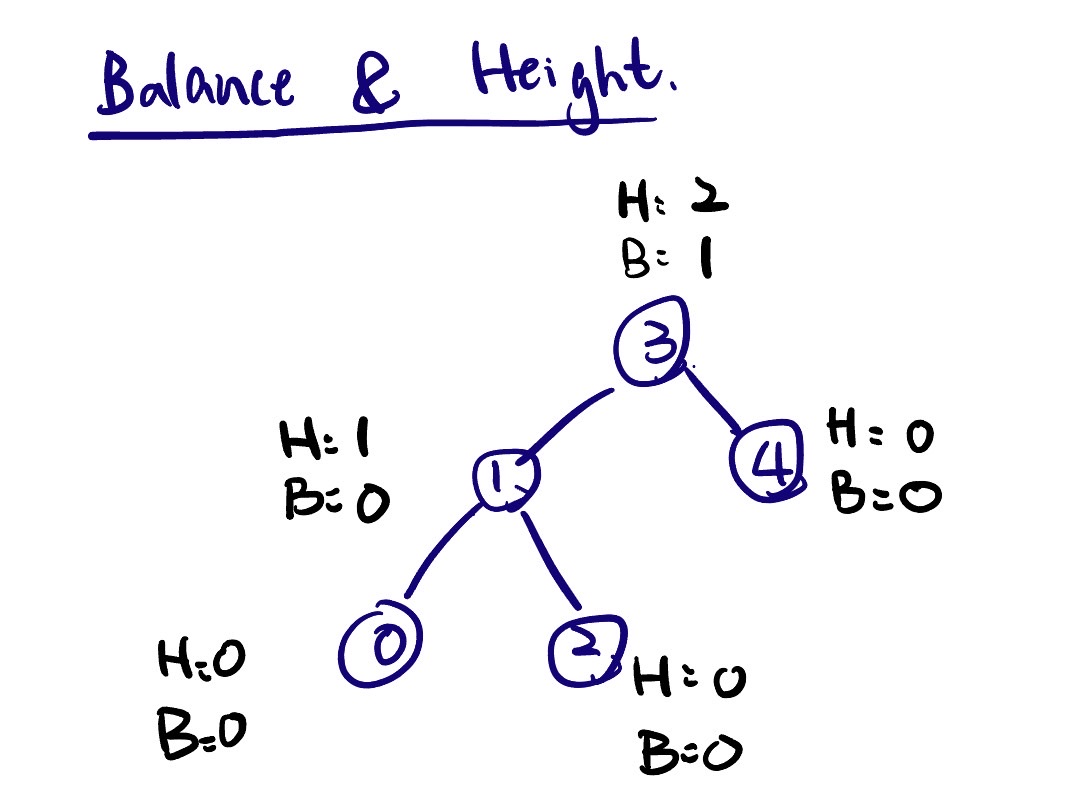 Balance & Height.
H: 2
B= 1
3
H: 1
B= 0
1
4
H= 0
B=0
0
2
H:0
B=0
H= 0
B=0